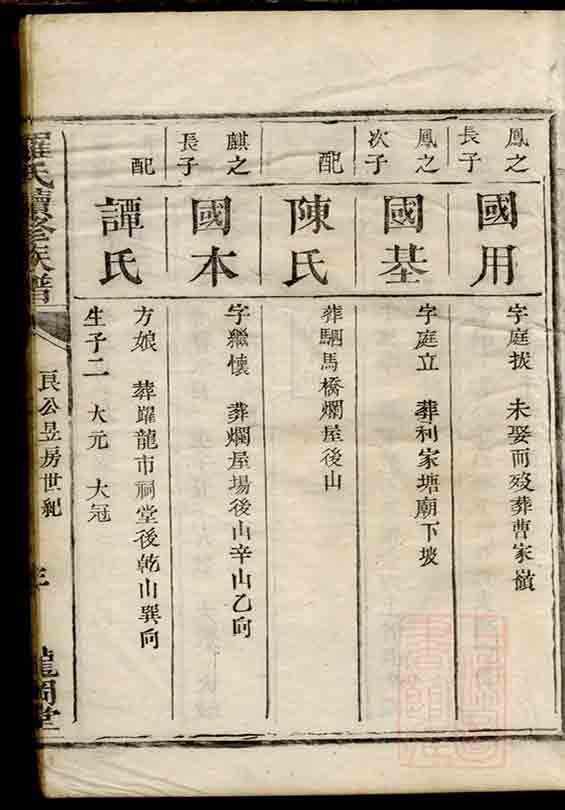 鳳之
長子
國用
字庭拔 未娶而歿葬曹家嶺
鳳之
次子
國基
字庭立 葬利家塘廟下坡
配
陳氏
葬駟馬橋爛屋後山
麒之
長子
國本
字繼懷 葬爛屋場後山辛山乙向
配
譚氏
方娘 葬躍龍市祠堂後乾山巽向
生子二 大元 大冠
羅氏續修族譜
良公昱房世紀